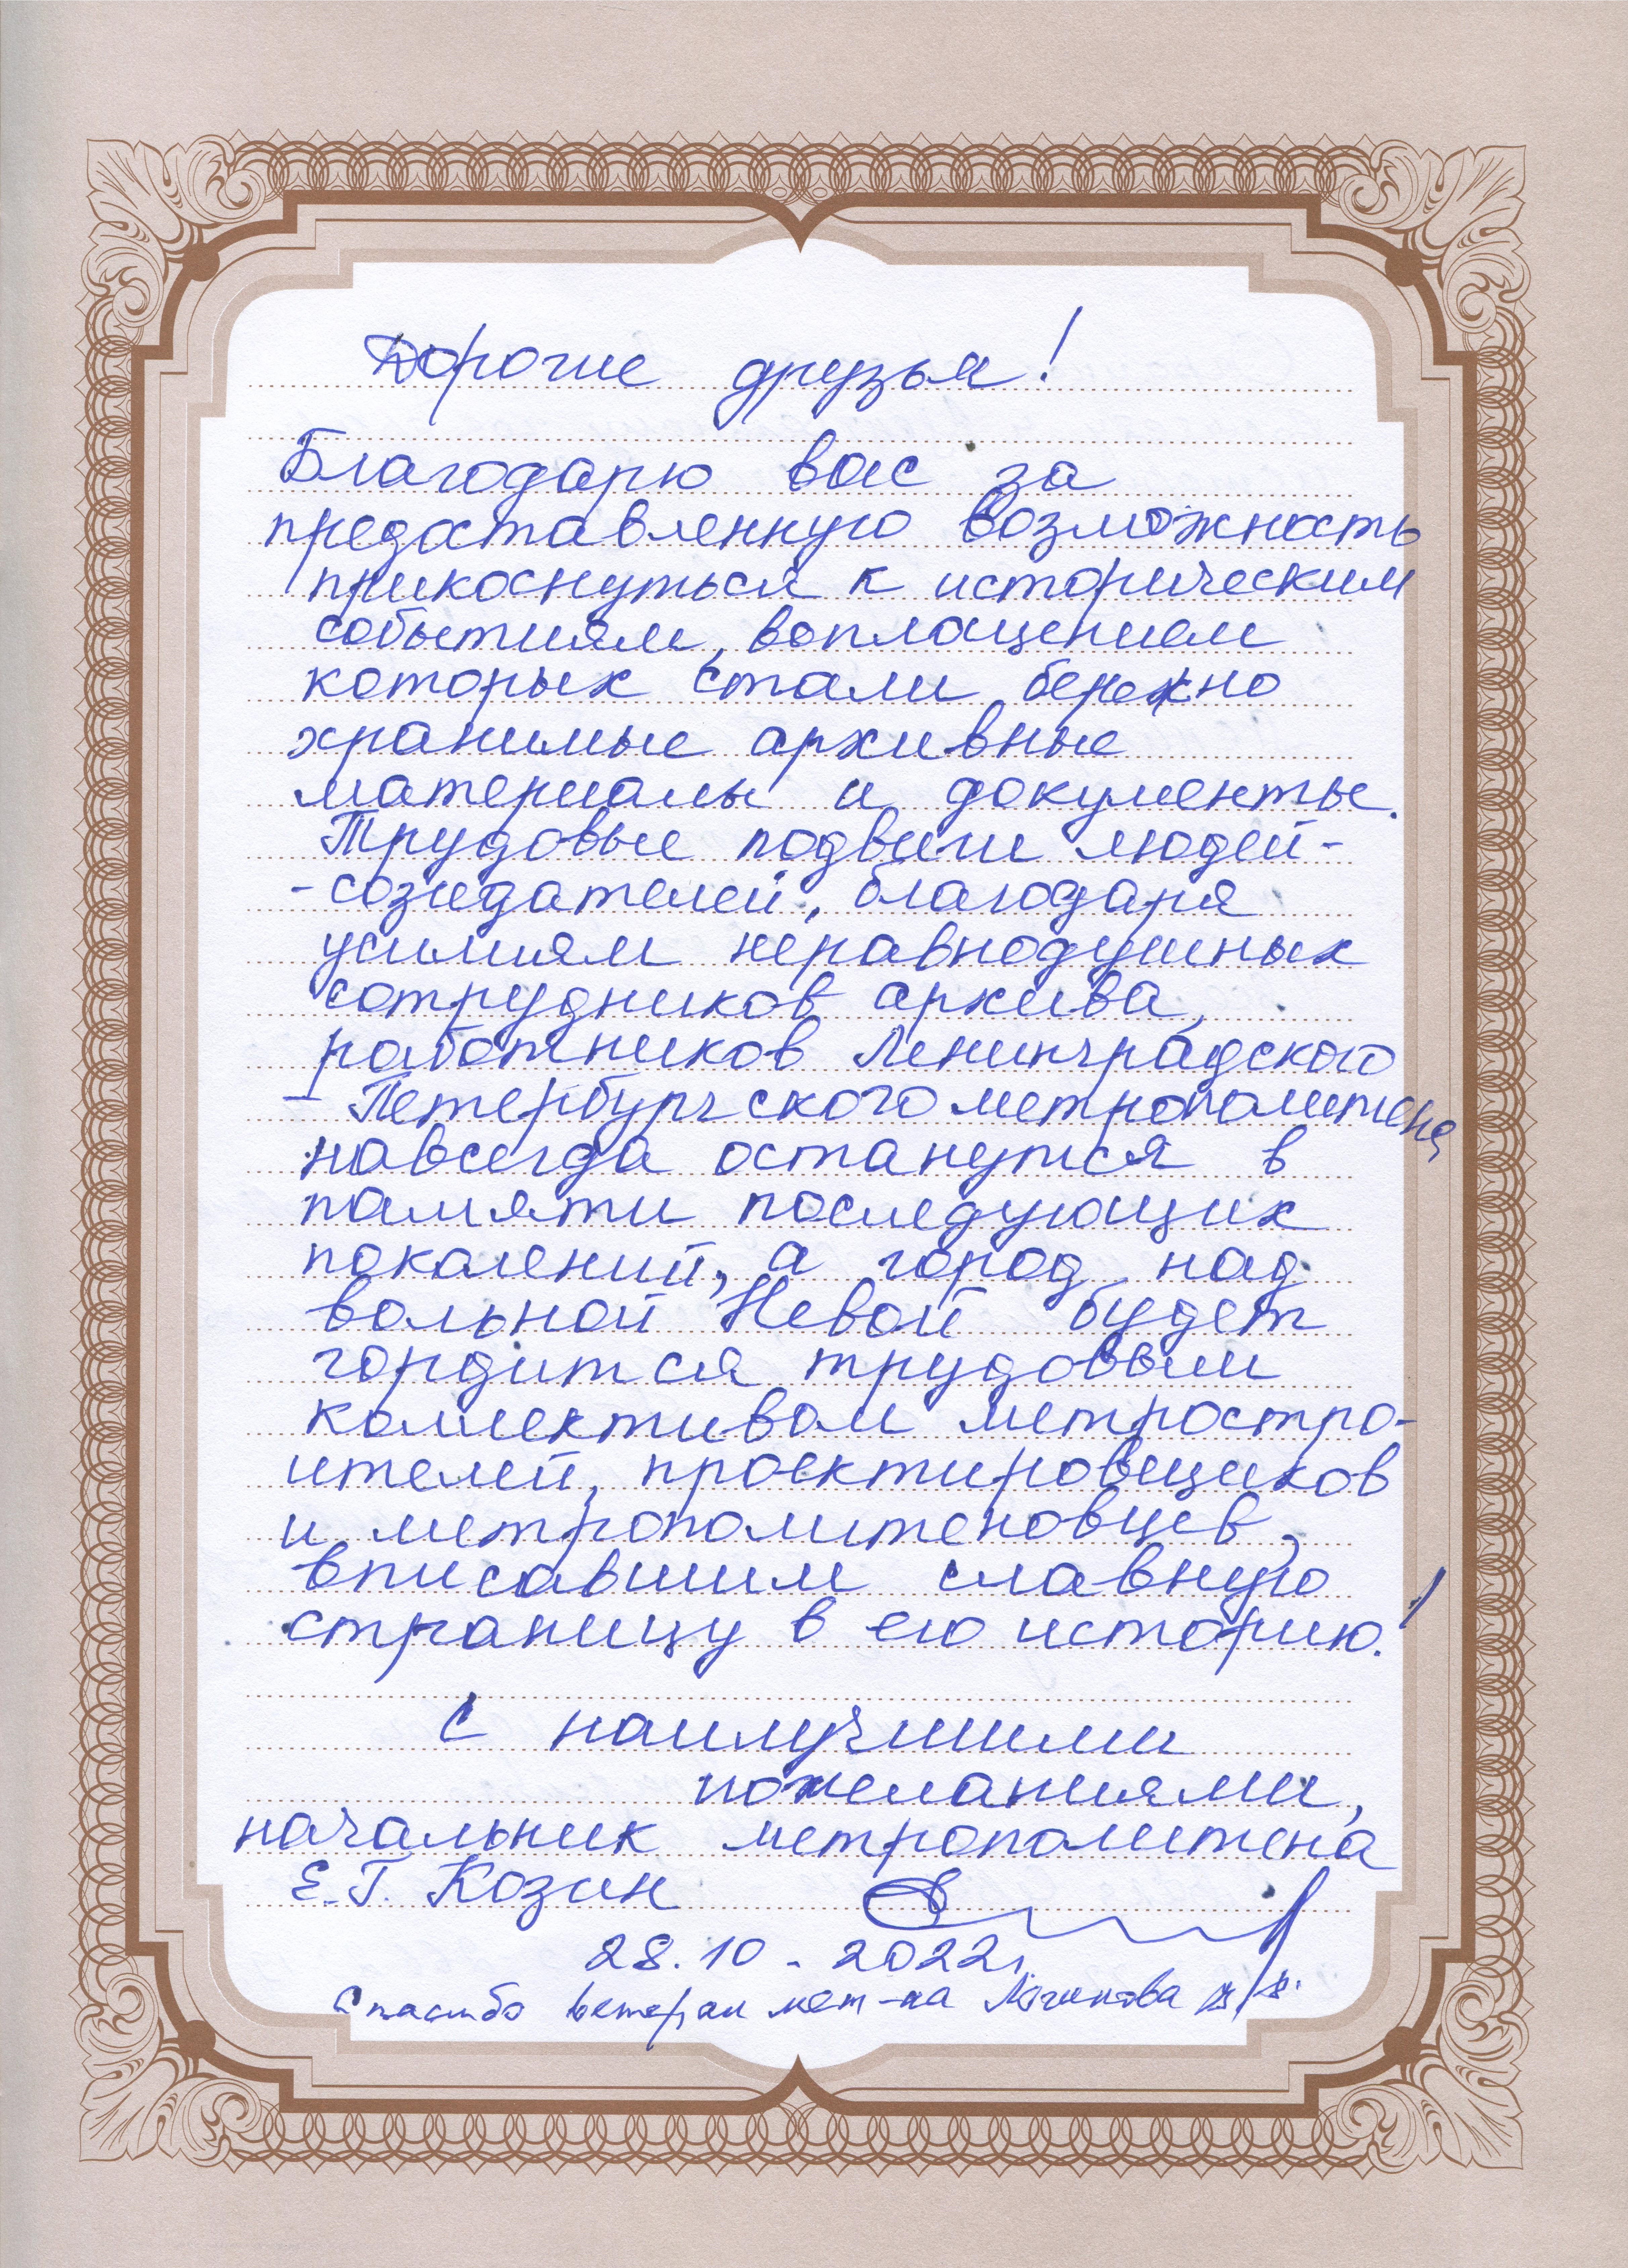 Дорогие друзья!
Благодарю вас за
предоставленную возможность
прикоснуться к историческим
событиям, воплощением
которых стали бережно
хранимые архивные
материалы и документы.
Трудовые подвиги людей-
-созидателей, благодаря
усилиям неравнодушных
сотрудников архива,
работников Ленинградского
- Петербургского метрополитена
навсегда останутся в
памяти последующих
поколений, а город над
вольной Невой будет
гордится трудовым
коллективом метростро-
ителей, проектировщиков
и метрополитеновцев,
вписавшим славную
страницу в его историю!
С наилучшими
пожеланиями,
начальник метрополитена
Е.Г. Козин
28.10.2022г.
Спасибо ветеран мет-на